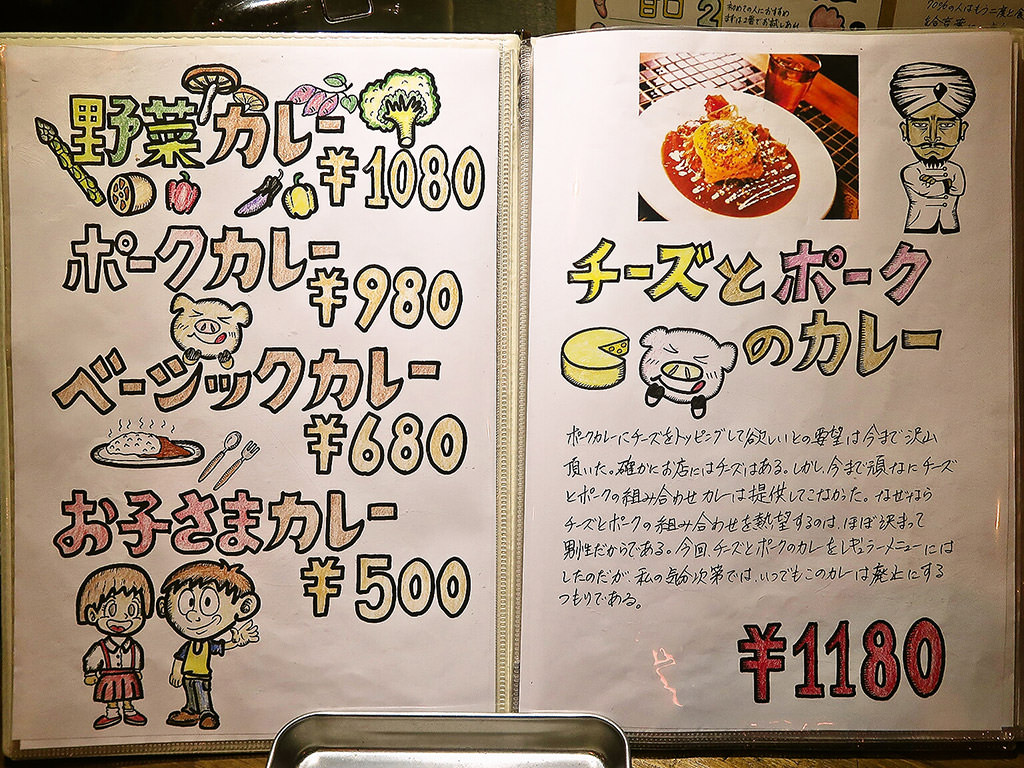 甘口 2
初めての人におすすめ
まずは2番でお試しあれ
野菜カレー
¥1080
ポークカレー
¥980
ベーシックカレー
¥680
お子さまカレー
¥500
チーズとポーク
のカレー
ポークカレーにチーズをトッピングして欲しいとの要望は今まで沢山
頂いた。確かにお店にはチーズはある。しかし、今まで頑なにチーズ
とポークの組み合わせカレーは提供してこなかった。なぜなら
チーズとポークの組み合わせを熱望するのは、ほぼ決まって
男性だからである。今回、チーズとポークのカレーをレギュラーメニューにはしたのだが
私の気分次第では、いつでもこのカレーは廃止にする
つもりである。
¥1180